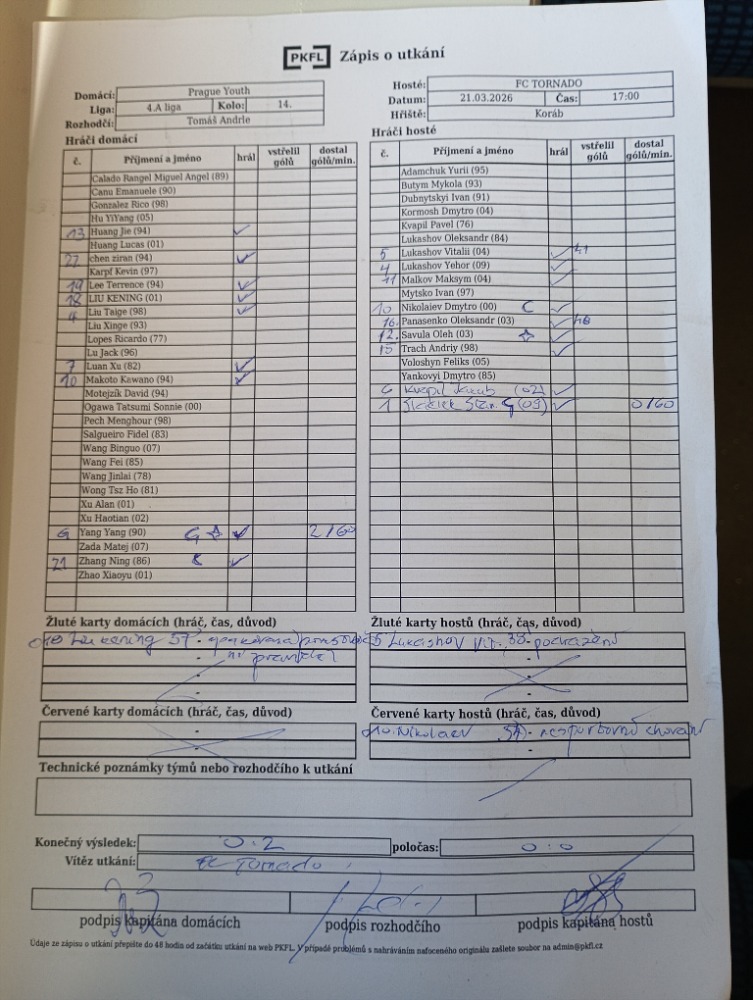 PKFL Zápis o utkání
Domácí: Prague Youth
Liga: 4.A liga Kolo: 14.
Rozhodčí: Tomáš Andrle
Hosté: FC TORNADO
Datum: 21.03.2026 Čas: 17:00
Hřiště: Koráb
Hráči domácí
č. Příjmení a jméno hrál vstřelil gólů dostal gólů/min.
Calado Rangel Miguel Angel (89)
Canu Emanuele (90)
Gonzalez Rico (98)
Hu YiYang (05)
13 Huang Jie (94)
Huang Lucas (01)
22 chen ziran (94)
Karpf Kevin (97)
19 Lee Terrence (94)
18 LIU KENING (01)
4 Liu Taige (98)
Liu Xinge (93)
Lopes Ricardo (77)
Lu Jack (96)
7 Luan Xu (82)
10 Makoto Kawano (94)
Motejzík David (94)
Ogawa Tatsumi Sonnie (00)
Pech Menghour (98)
Salgueiro Fidel (83)
Wang Binguo (07)
Wang Fei (85)
Wang Jinlai (78)
Wong Tsz Ho (81)
Xu Alan (01)
Xu Haotian (02)
Yang Yang (90) G 2/60
Zada Matej (07)
21 Zhang Ning (86)
Zhao Xiaoyu (01)
Hráči hosté
č. Příjmení a jméno hrál vstřelil gólů dostal gólů/min.
Adamchuk Yurii (95)
Butym Mykola (93)
Dubnytskyi Ivan (91)
Kormosh Dmytro (04)
Kvapil Pavel (76)
Lukashov Oleksandr (84)
5 Lukashov Vitalii (04) 41
4 Lukashov Yehor (09)
11 Malkov Maksym (04)
Mytsko Ivan (97)
10 Nikolaiev Dmytro (00) C
16. Panasenko Oleksandr (03)
12. Savula Oleh (03)
15 Trach Andriy (98)
Voloshyn Feliks (05)
Yankovyi Dmytro (85)
6 Kvapil Jakub (02)
1 G (09) 0/60
Žluté karty domácích (hráč, čas, důvod)
Liu Kening 57 -
pravidel
Žluté karty hostů (hráč, čas, důvod)
5 Lukashov Vit. 38 - podražení
Červené karty domácích (hráč, čas, důvod)
Červené karty hostů (hráč, čas, důvod)
10. Nikolaev - nesportovní chování
Technické poznámky týmů nebo rozhodčího k utkání
Konečný výsledek: 0:2 poločas: 0:0
Vítěz utkání: FC Tornado
podpis kapitána domácích podpis rozhodčího podpis kapitána hostů
Údaje ze zápisu o utkání přepište do 48 hodin od začátku utkání na web PKFL. V případě problémů s nahráváním nafoceného originálu zašlete soubor na admin@pkfl.cz